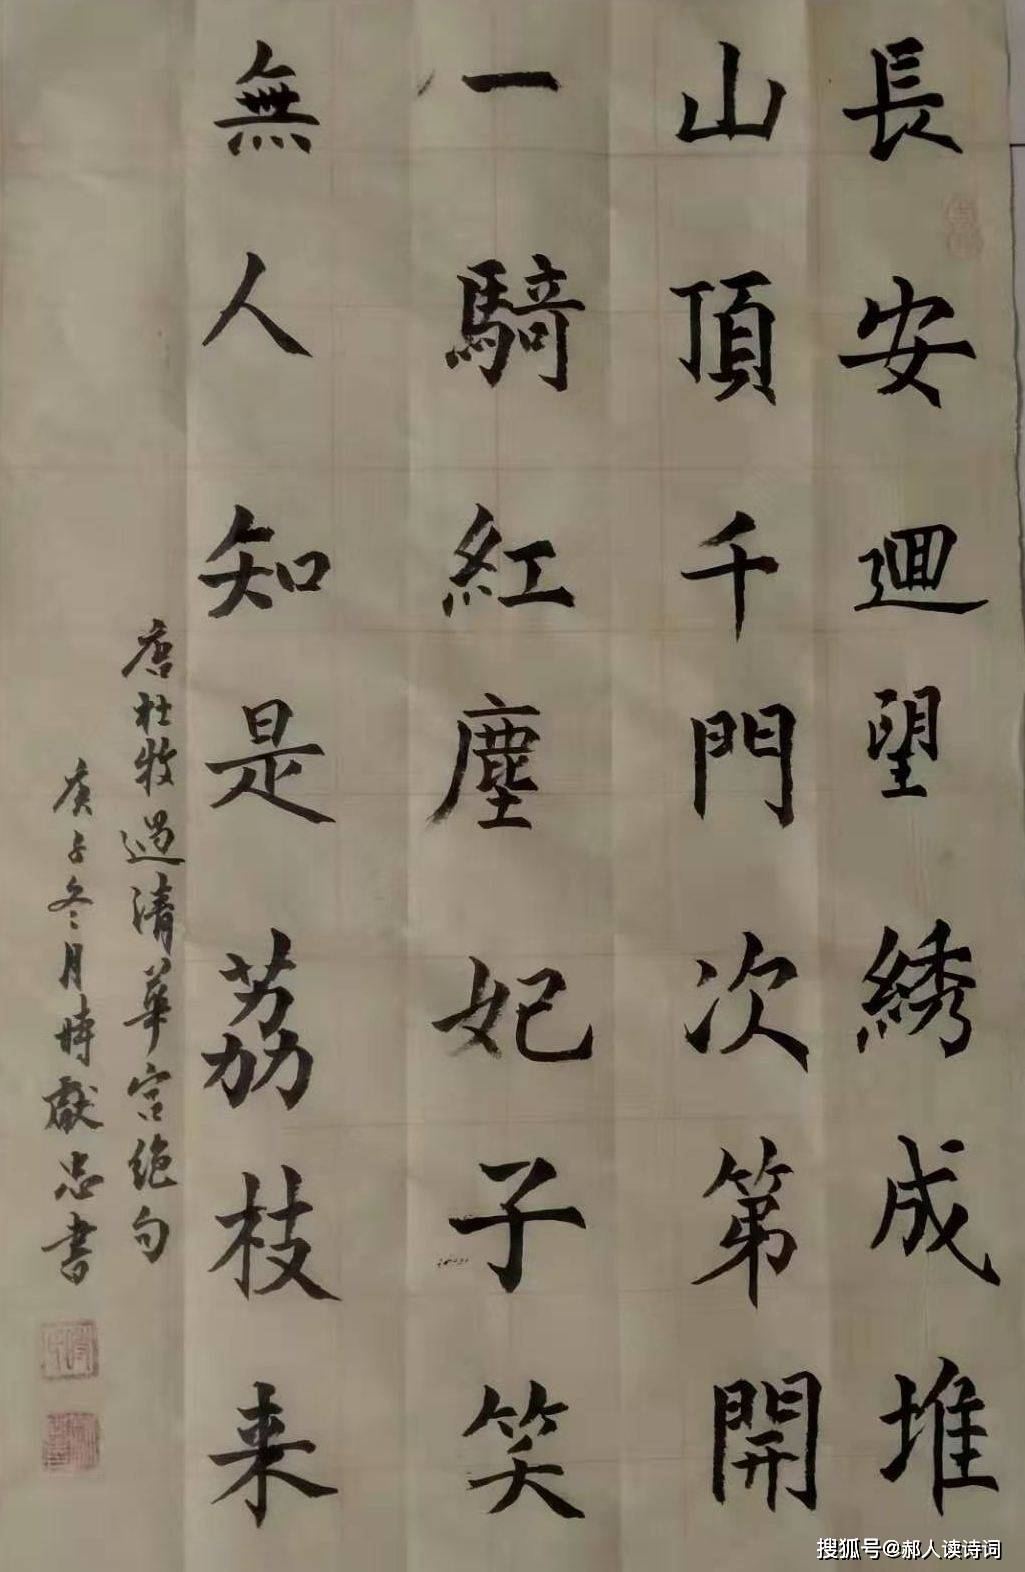 長安迴望綉成堆
山頂千門次第開
一騎紅塵妃子笑
無人知是荔枝来
唐杜牧過清華宫绝句
庚子冬月時獻忠書
搜狐号@郝人读诗词